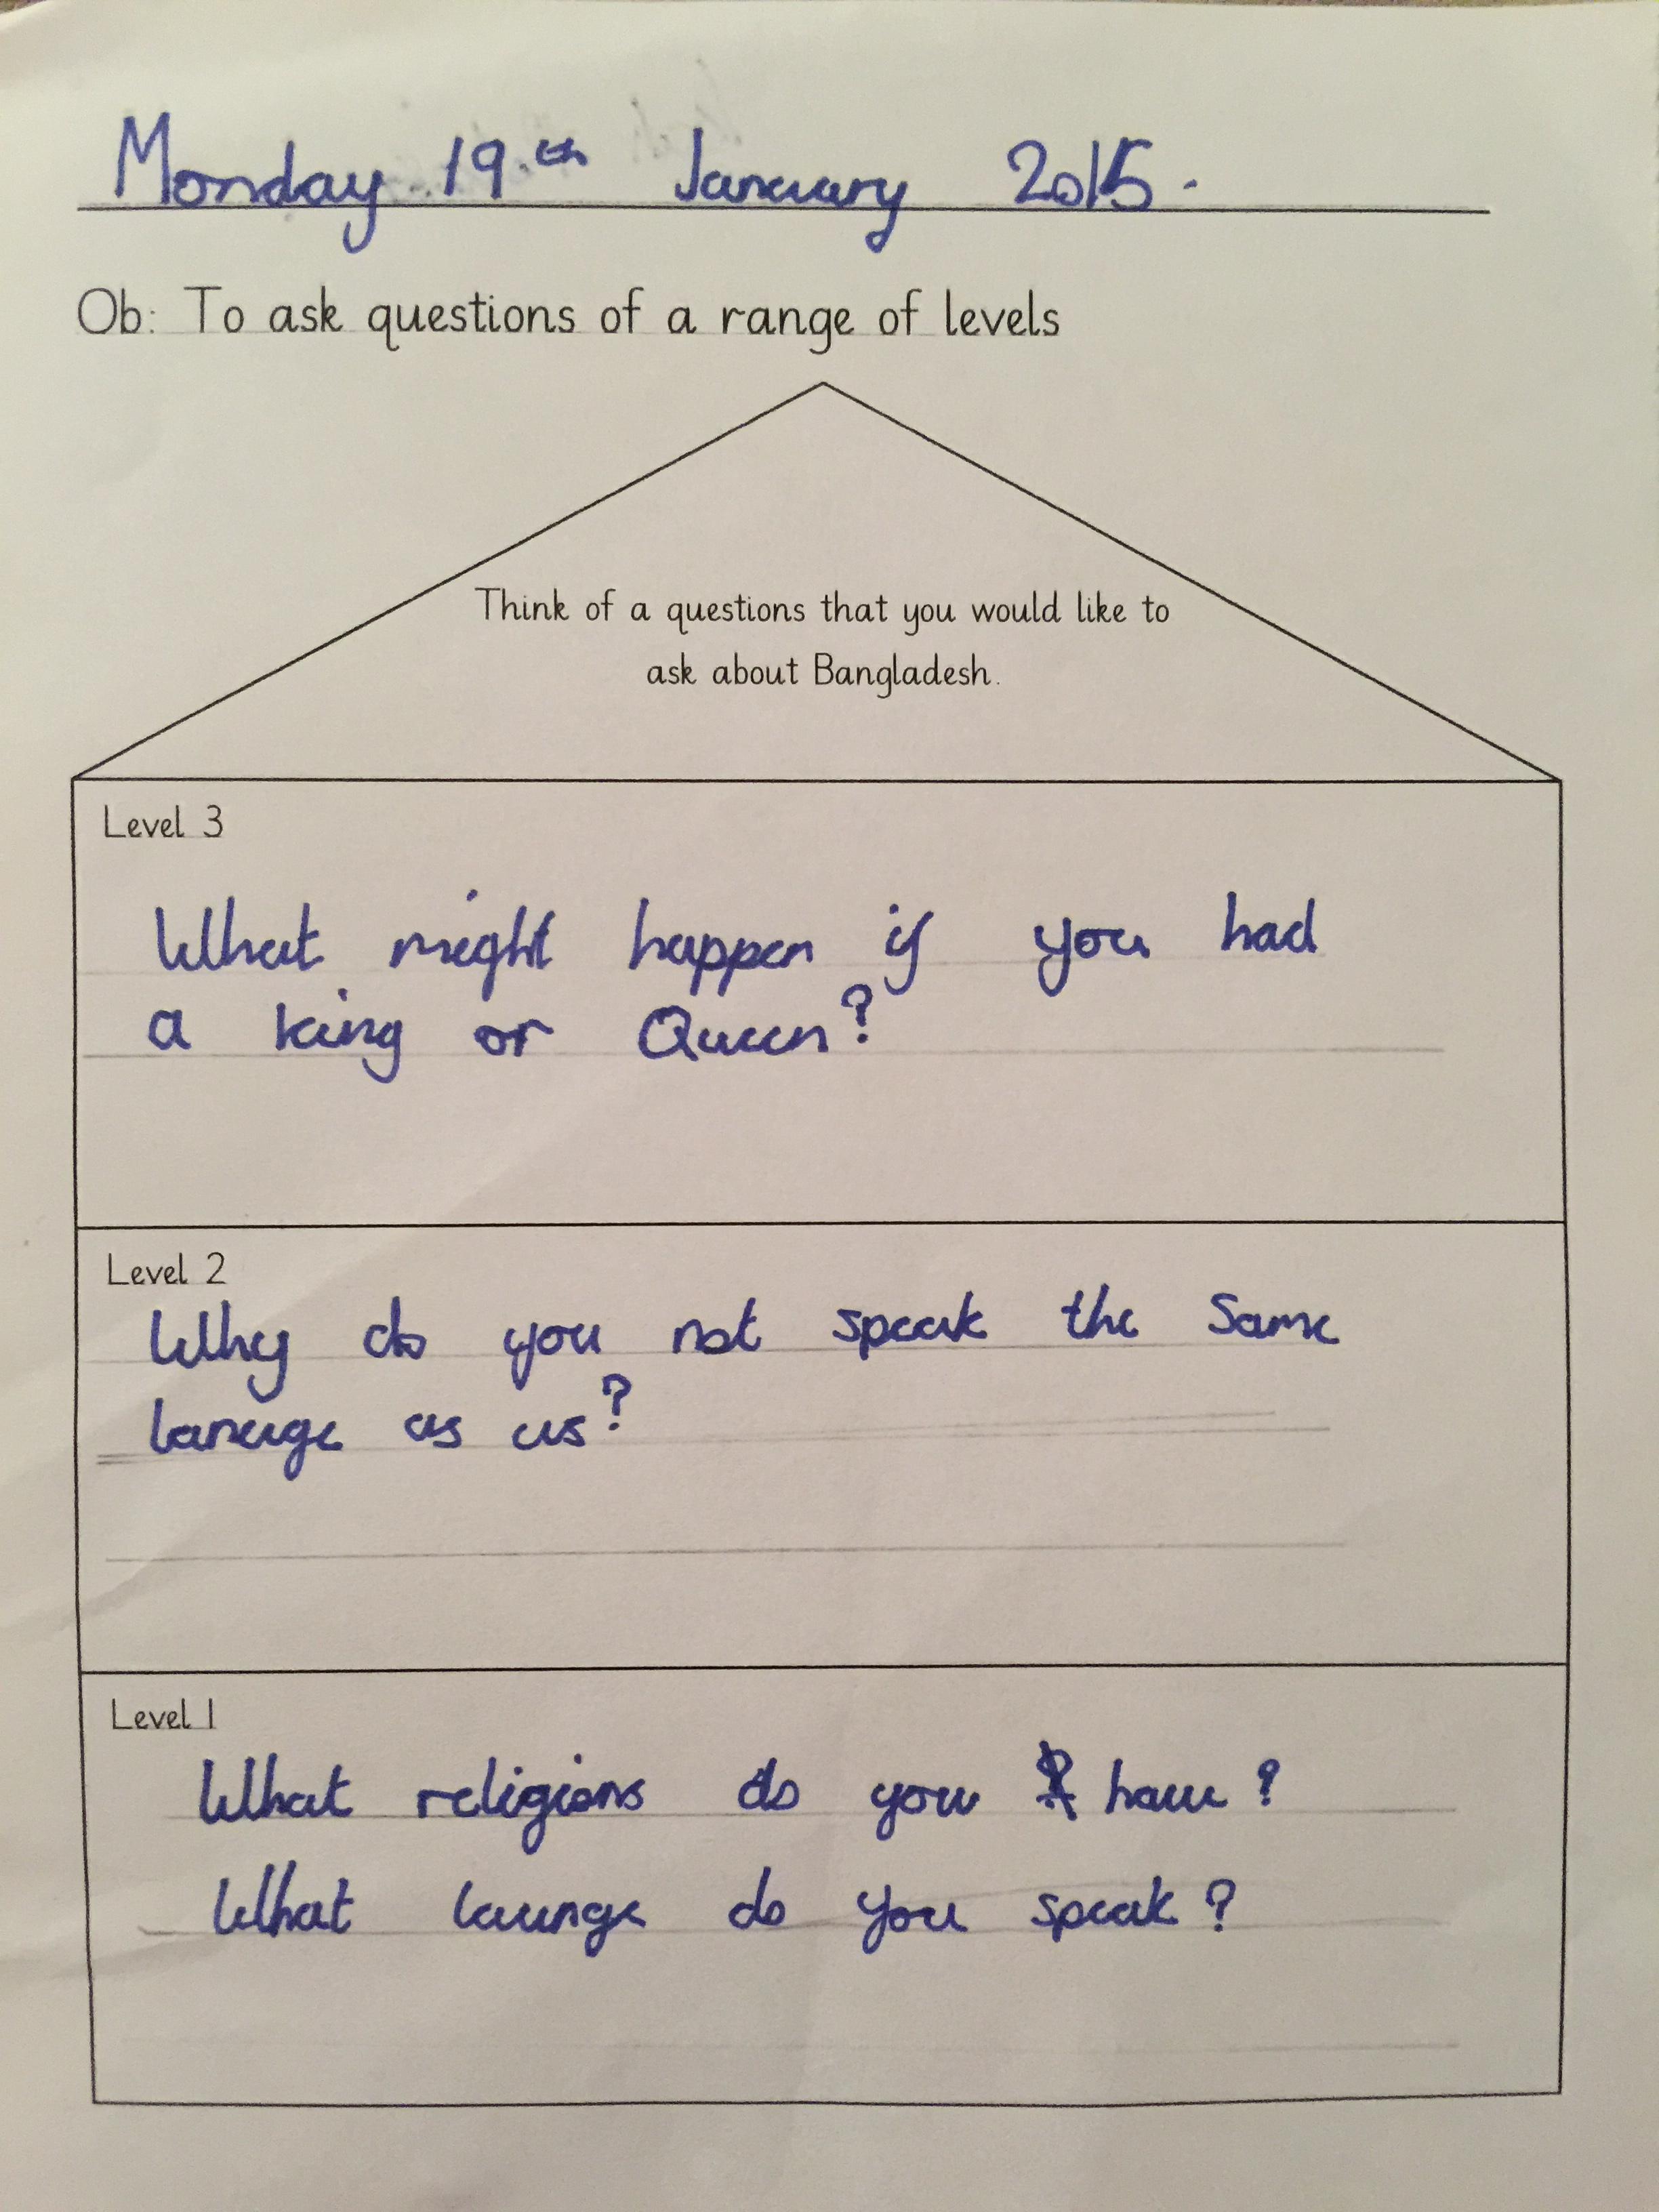 Monday 19th January 2015.
Ob: To ask questions of a range of levels
Think of a questions that you would like to
ask about Bangladesh.
Level 3
What might happen if you had
a king or Queen?
Level 2
Why do you not speak the same
lanuge as us?
Level 1
What religions do you have?
What launge do you speak?